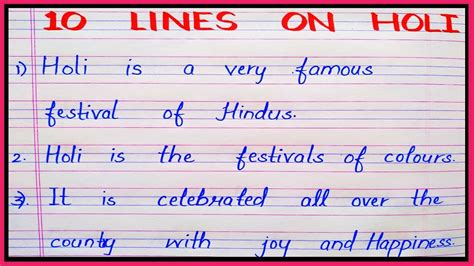 10 LINES ON HOLI
1) Holi is a very famous
festival of Hindus.
2. Holi is the festivals of colours.
3). It is celebrated all over the
country with joy and Happiness.